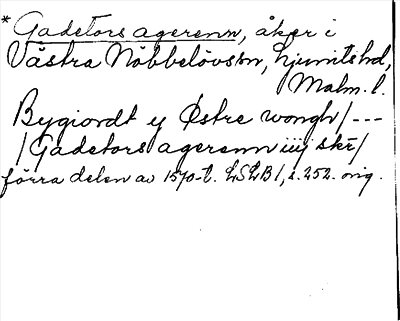 * Gadetors agerenn, åker i
Västra Nöbbelövs sn, Ljunits hd,
Malm. l.
Bygiordt y Østre wongh/---
/Gadetors agerenn iiij skr/
förra delen av 1570-t. LSLB 1, s. 252. orig.